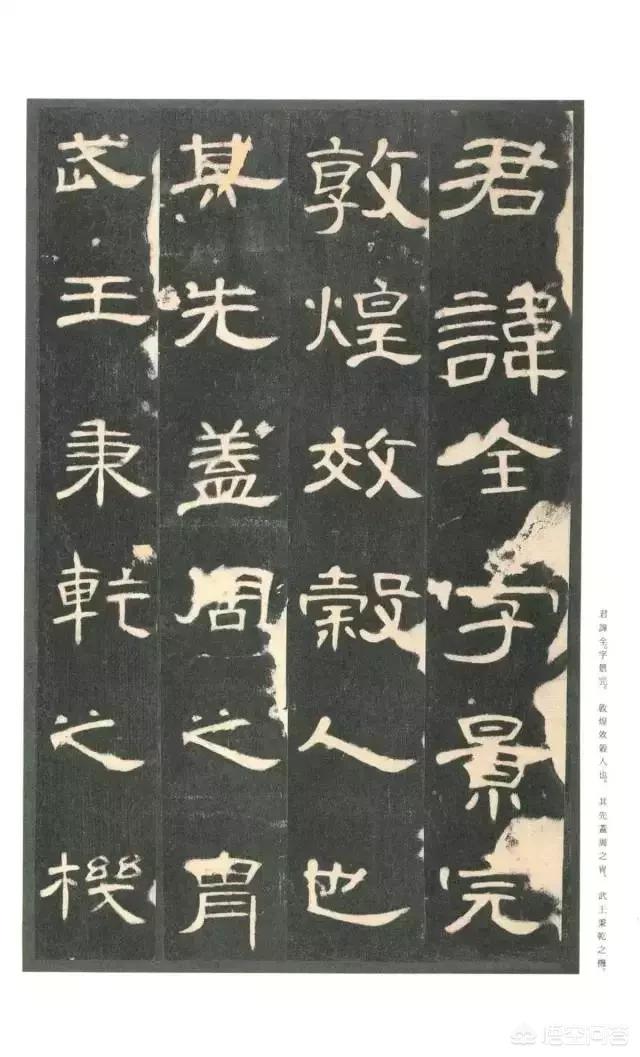 君諱全字景完
敦煌效穀人也
其先蓋周之胄
武王秉乾之機
君諱全。字景完。敦煌效穀人也。其先蓋周之胄。武王秉乾之機。
悟空问答